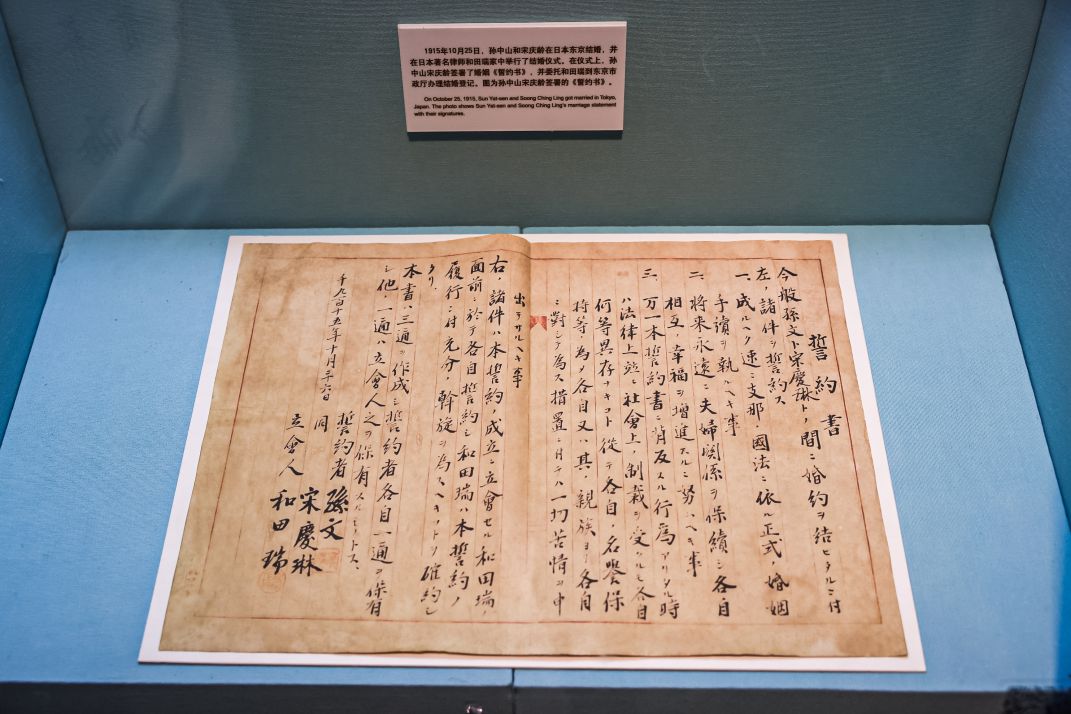 1915年10月25日，孙中山和宋庆龄在日本东京结婚，并
在日本著名律师和田瑞家中举行了结婚仪式。在仪式上，孙
中山宋庆龄签署了婚姻《誓约书》，并委托和田瑞到东京市
政厅办理结婚登记。图为孙中山宋庆龄签署的《誓约书》。
On October 25, 1915, Sun Yat-sen and Soong Ching Ling got married in Tokyo,
Japan. The photo shows Sun Yat-sen and Soong Ching Ling's marriage statement
with their signatures.
誓約書
今般孫文ト宋慶琳トノ間ニ婚約ヲ結ヒタルニ付
左ノ諸件ヲ誓約ス
一、成ルヘク速ニ支那ノ國法ニ依ル正式ノ婚姻
手續ヲ執ルヘキ事
二、将来永遠ニ夫婦関係ヲ保續シ各自
相互ノ幸福ヲ増進スルニ努ムヘキ事
三、万一本誓約書ニ背反スル行為アリタル時
ハ法律上並ニ社會上ノ制裁ヲ受クルモ各自
何等異存ナキコト従テ各自ノ名譽保
持等ノ為メ各自又ハ其ノ親族ヨリ各自
ニ對シテ為ス措置ニ付テハ一切苦情ヲ申
出テサルヘキ事
右ノ諸件ハ本誓約ノ成立ニ立會セル和田瑞ノ
面前ニ於テ各自誓約シ和田瑞ハ本誓約ノ
履行ニ付充分ノ斡旋ヲ為スヘキコトヲ確約シ
タリ、
本書ハ三通ヲ作成シ誓約者各自一通ヲ保有
シ他ノ一通ハ立會人之ヲ保有スルモノトス、
千九百十五年十月二十六日
誓約者 孫文
同 宋慶琳
立會人 和田瑞